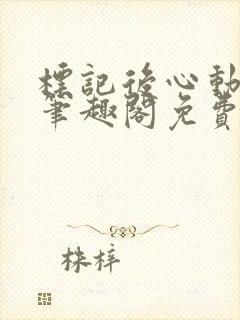 標記後心動
筆趣閣免費
株梓